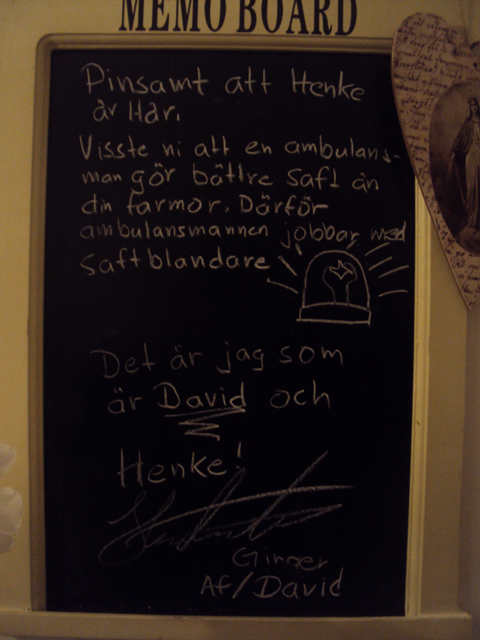 MEMO BOARD
Pinsamt att Henke
är Här.
Visste ni att en ambulans-
man gör bättre saft än
din farmor. Därför
ambulansmannen jobbar med
saftblandare
Det är jag som
är David och
Henke!
Ginger
Af/David